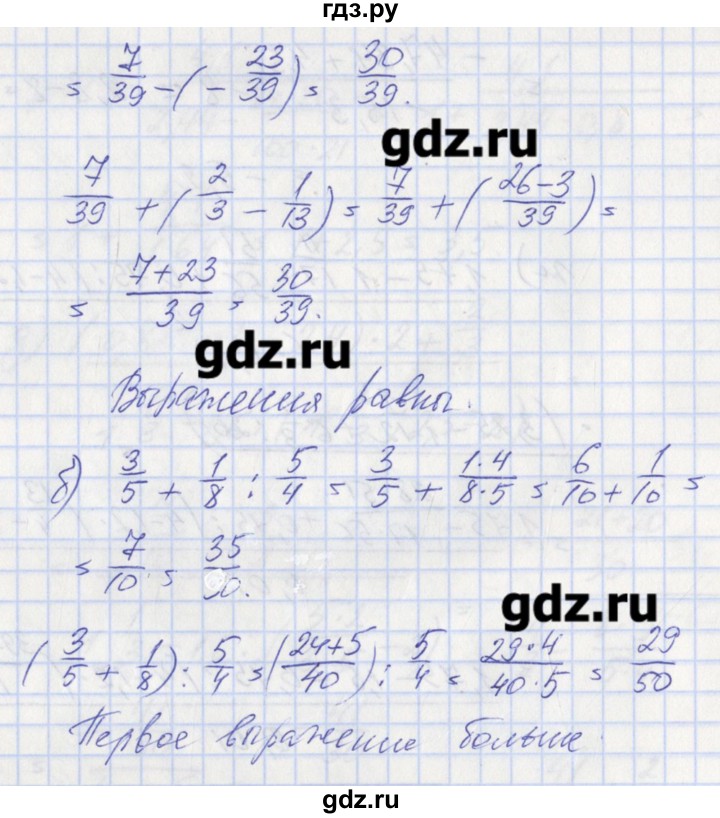 гдз.ру
= 7/39 - (- 23/39) = 30/39.
gdz.ru
7/39 + (2/3 - 1/13) = 7/39 + (26-3/39) =
= 7+23/39 = 30/39.
gdz.ru
Выражения равны.
б) 3/5 + 1/8 : 5/4 = 3/5 + 1·4/8·5 = 6/10 + 1/10 =
= 7/10 = 35/50.
gdz.ru
(3/5 + 1/8) : 5/4 = (24+5/40) : 5/4 = 29·4/40·5 = 29/50
Первое выражение больше.
gdz.ru